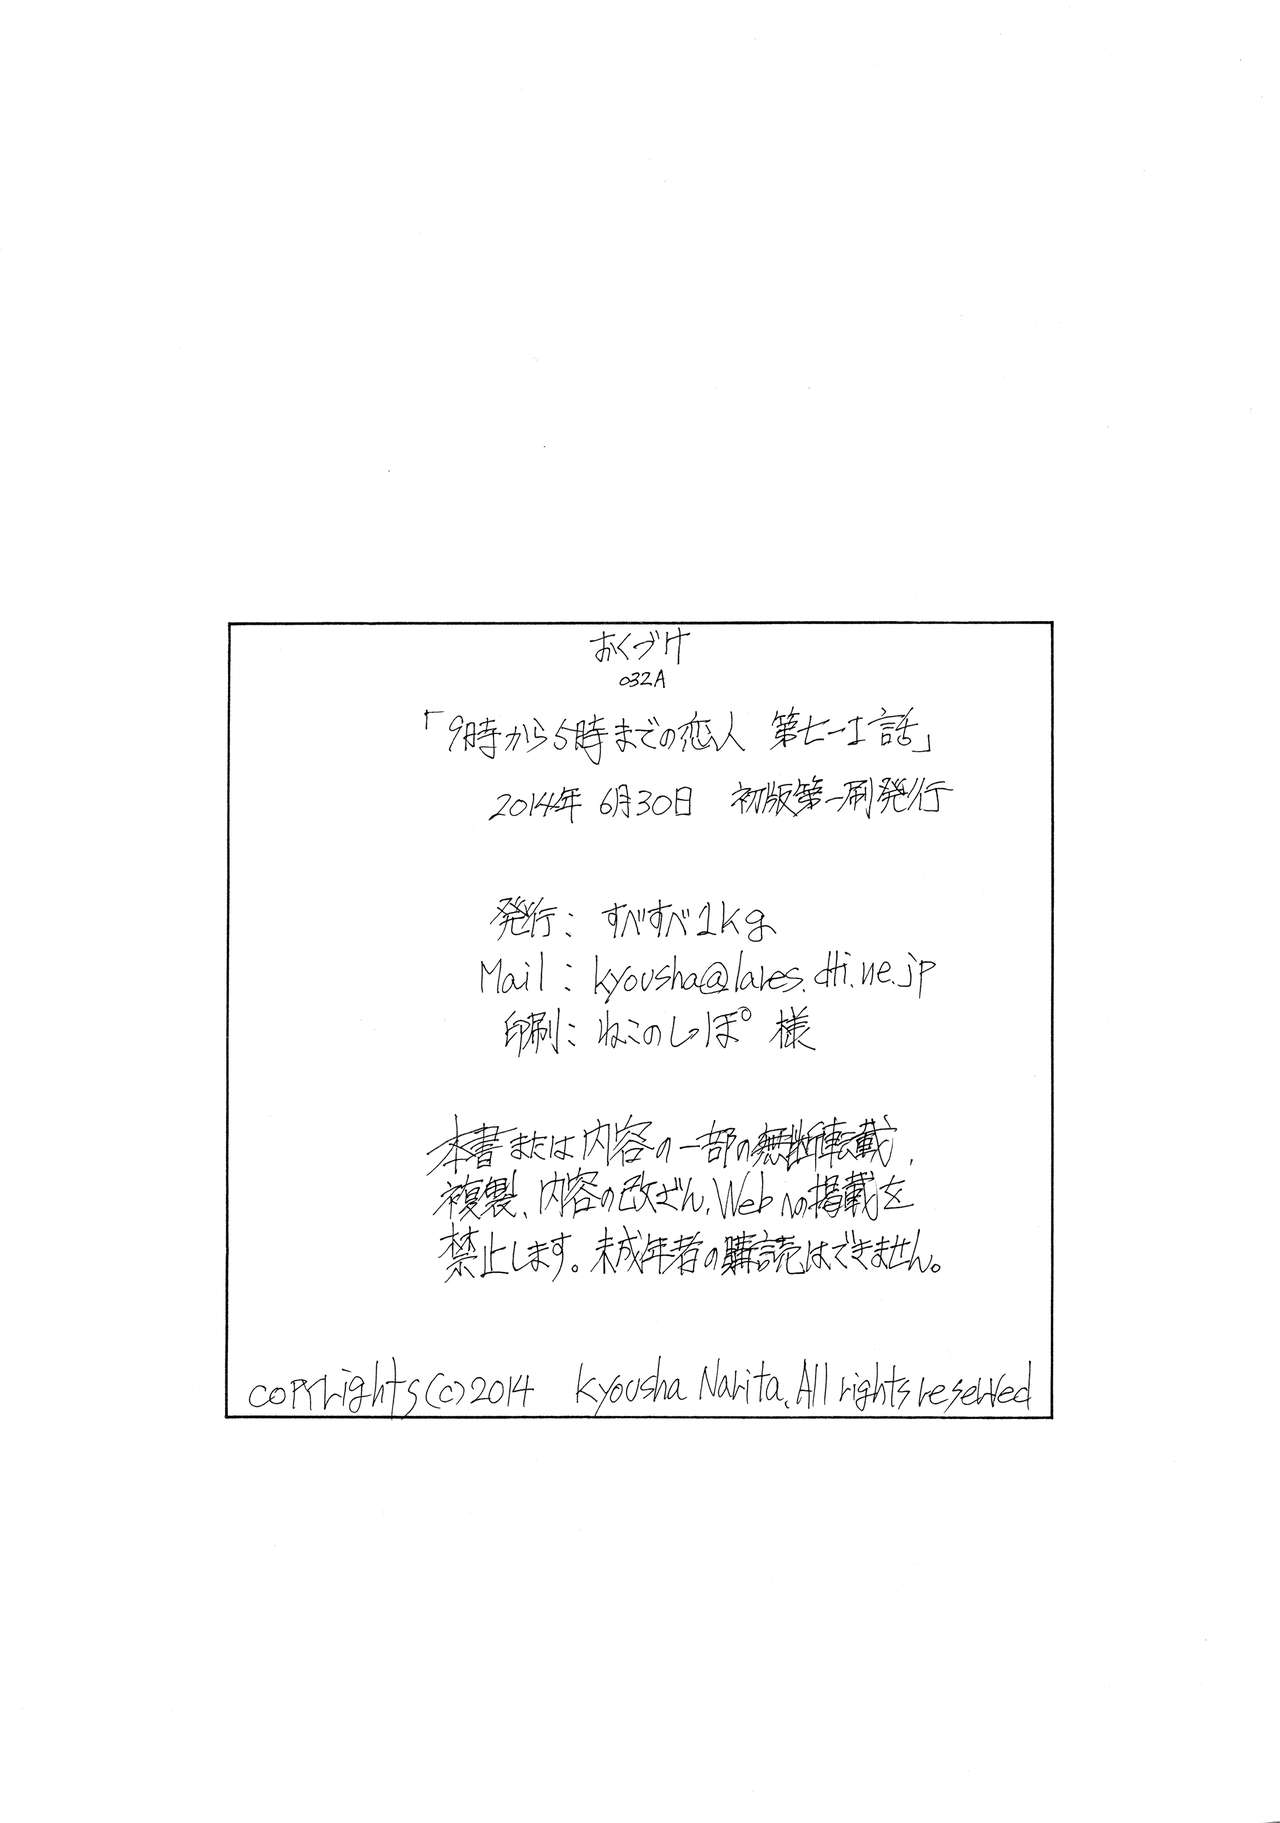 おくづけ
032A
「9時から5時までの恋人 第七-I話」
2014年 6月30日 初版第一刷発行
発行: すべすべ1kg
Mail: kyousha@lares.dti.ne.jp
印刷: ねこのしっぽ 様
本書または内容の一部の無断転載、
複製、内容の改ざん、Webへの掲載を
禁止します。未成年者の購読はできません。
copyrights(c)2014 Kyousha Narita, All rights reserved